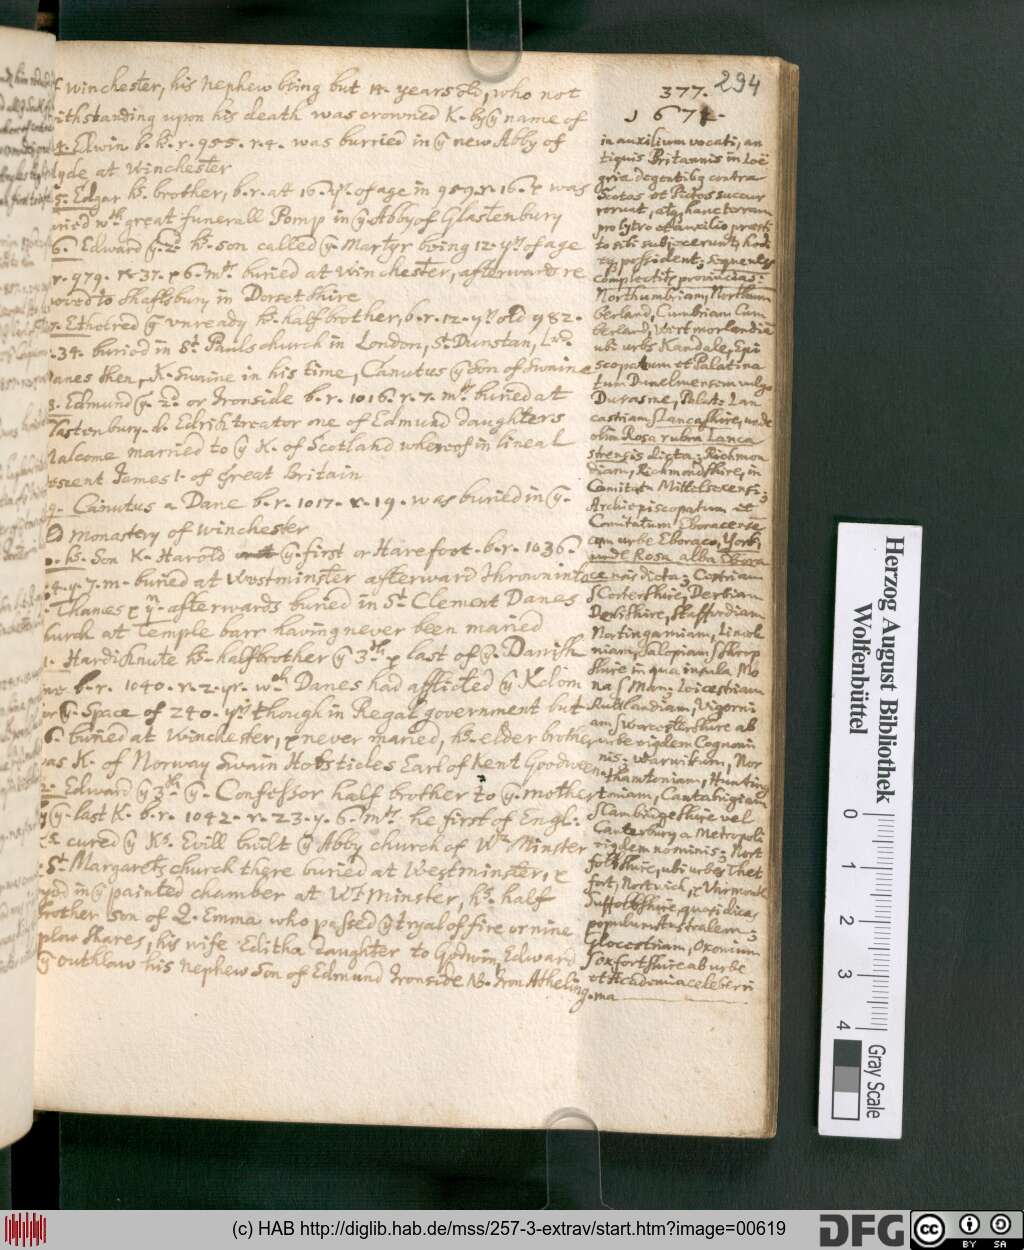 377.
294
1671.
winchester, his nephew being but years who not
ithstanding upon his death was crowned K. by ye name of
4. Edwin b. k. r. 955. r. 4. was burried in ye new Abby of
lyde at Winchester
5. Edgar ks. brother, b. r. at 16. yrs. of age in 959. r. 16. & was
wth great funerall Pomp in ye Abby of Glastenbury
6. Edward ye. 2d. ks. son called ye Martyr being 12. yrs of age
r. 979. 37. & 6. mts. buried at Winchester, afterwards re
oved to Shaftsbury in Dorsetshire
7. Ethelred ye unready ks. half brother, b. r. 12. yrs old 982.
.34. buried in St. Pauls church in London, St. Dunstan,
anes then, K. Swaine in his time, Canutus ye Son of Swaine
8. Edmund ye. 2d. or Ironside b. r. 1016. r. 7. mts. buried at
lastenbury. Edrik treator one of Edmund daughters
Malcome married to ye K. of Scotland whereof in lineal
escent James 1. of Great Britain
9. Canutus a Dane b. r. 1017. r. 19. was buried in ye.
ld monastery of Winchester
ks. Son K. Harold ye. first or Harefoot. b. r. 1036.
4. y. 7. m. buried at Westminster afterward thrown into
Thames & afterwards buried in St Clement Danes
hurch at Temple barr having never been maried
1. HardiKnute ks. halfbrother ye 3d. & last of ye. Danish
b. r. 1040. r. 2. yr. wch Danes had afflicted ye Kdom
or ye. Space of 240. yrs though in Regal government but
6. buried at Winchester, & never maried, ks. elder brother
was K. of Norway Swain Earl of Kent Goodween
2. Edward ye 3d. ye. Confessor half brother to ye. mother
ye. last K. b. r. 1042. r. 23. y. 6. mts. he first of Engl:
cured ye Ks. Evill built ye Abby church of Wt Minster
St. Margarets church there buried at Westminster, &
in ye painted chamber at Wt Minster, ks. half
brother son of Q. Emma who passed ye tryal of fire or nine
plow shares, his wife Editha daughter to Godwin, Edward
ye outhlaw his nephew son of Edmund Ironside NB. Athelin
g.
in auxilium vocati, an
tiquis Britannis in Loë
gria degentibq contra
Scotos et Pictos succur
rerunt, atq hanc terram
pro lytro et auxilio præsti
to sibi subjecerunt, hodi
eq possident; sequentes
complectitr provincias:
Northumbriam, Northum
berland, Cumbriam Cum
berland, Westmorlandiã
ubi urbs Kandale, Epi
scopatum et Palatina
tum Dunelmensem vulgo
Durasme, Palat. Lan
castriam S Lancashire, unde
olim Rosa rubra Lanca
strensis dicta; Richmon
diam, Richmondshire, in
Comitatu Mittelsexensi;
Archiepiscopatum et
Comitatum Eboracense
cum urbe Eboraco, York,
unde Rosa alba Ebora
censis dicta; Cestriam
S Cestershire; Derbiam
Derbishire, Staffordiam
Nortingamiam, Lincol
niam, Salopiam S Shrop
shire in qua insula Mo
na S Mon: Leicestriam
Rutlandiam, Vigorni
am S Worcestershire ab
urbe eijdem Cognom
nis; Warwikum, Nor
thamtoniam, Hunting
toniam, Cantabrigiam
S Cambridgeshire vel
Canterbury a Metropoli
eijdem nominis; Nort
folkshire, ubi urbes Thet
fort, Nortwich, & Yarmouth
Suffolkshire, quasi dicas
populum Australem;
Glocestriam, Oxonium
S oxfortshire ab urbe
et Academia celeberri
ma
Herzog August Bibliothek
Wolfenbüttel
0 1 2 3 4
Gray Scale
(c) HAB http://diglib.hab.de/mss/257-3-extrav/start.htm?image=00619
DFG
cc
BY SA